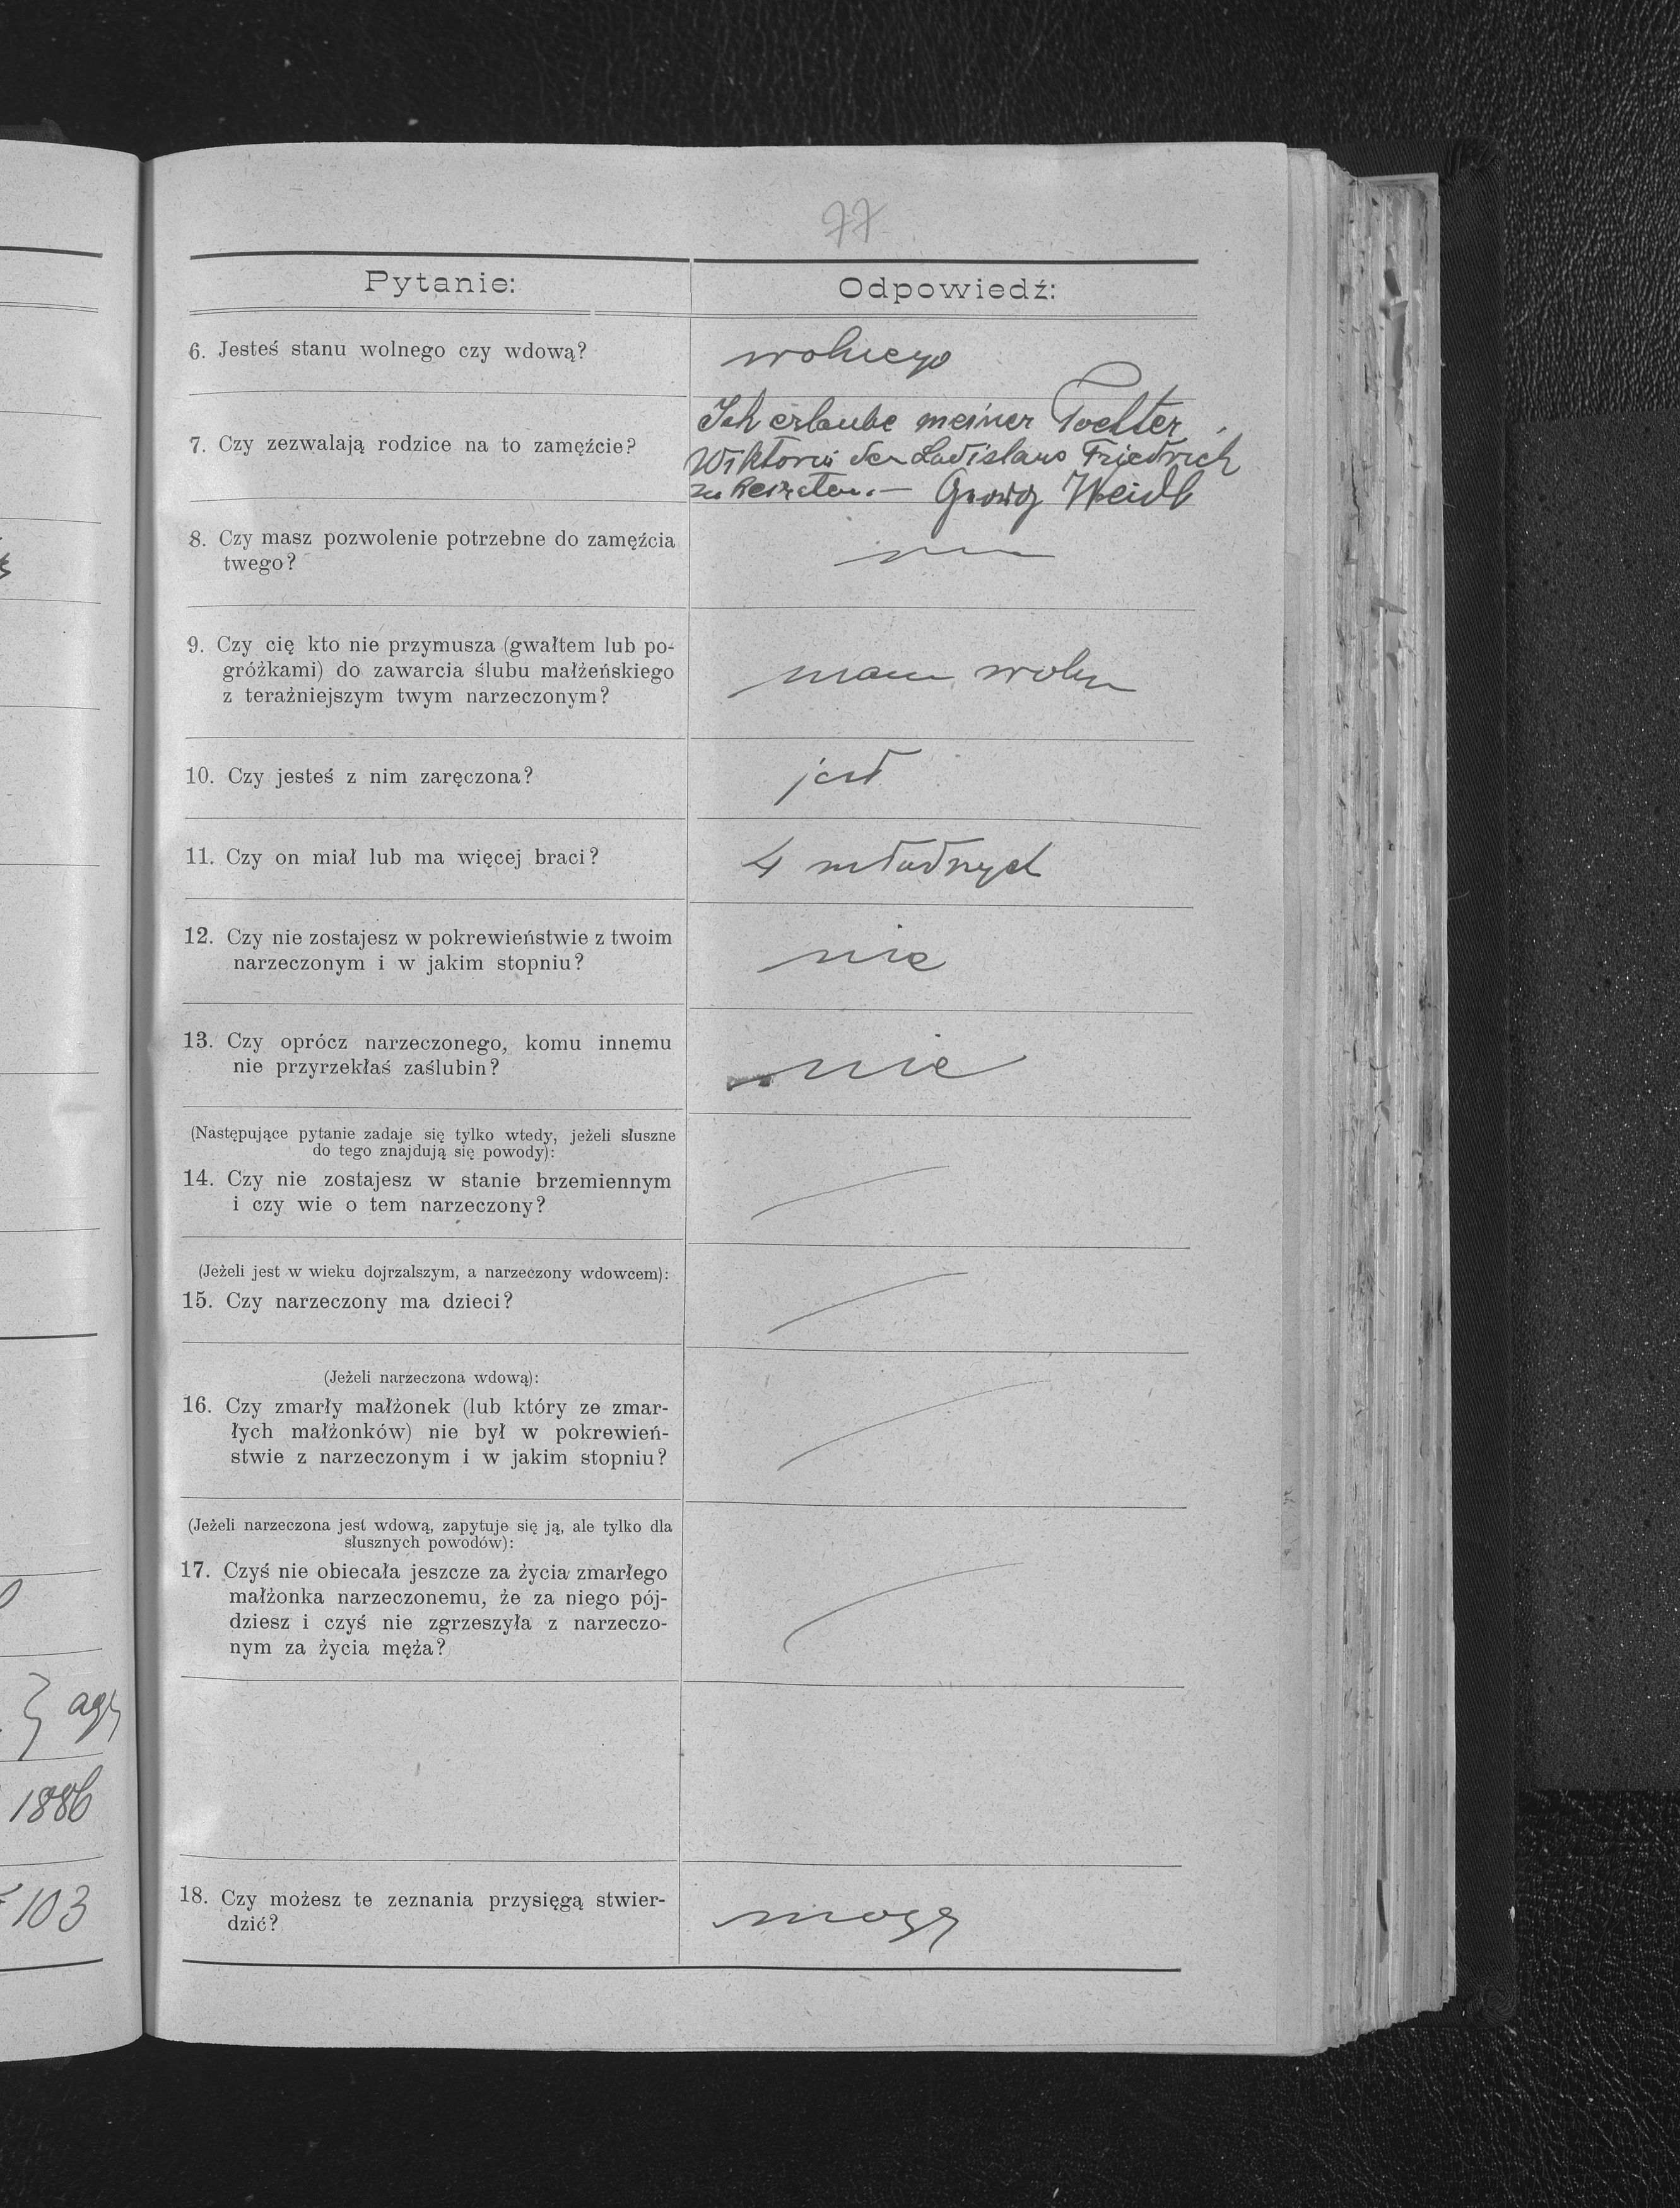 77
Pytanie:
Odpowiedź:
6. Jesteś stanu wolnego czy wdową?
wolnego
7. Czy zezwalają rodzice na to zamęźcie?
Ich erlaube meiner Tochter
Wiktoria den Ladislaus Friedrich
zu heiraten.— Georg Weidl
8. Czy masz pozwolenie potrzebne do zamęźcia
twego?
9. Czy cię kto nie przymusza (gwałtem lub po-
gróżkami) do zawarcia ślubu małżeńskiego
z teraźniejszym twym narzeczonym?
mam wolną
10. Czy jesteś z nim zaręczona?
jest
11. Czy on miał lub ma więcej braci?
4 młodszych
12. Czy nie zostajesz w pokrewieństwie z twoim
narzeczonym i w jakim stopniu?
nie
13. Czy oprócz narzeczonego, komu innemu
nie przyrzekłaś zaślubin?
nie
(Następujące pytanie zadaje się tylko wtedy, jeżeli słuszne
do tego znajdują się powody):
14. Czy nie zostajesz w stanie brzemiennym
i czy wie o tem narzeczony?
(Jeżeli jest w wieku dojrzalszym, a narzeczony wdowcem):
15. Czy narzeczony ma dzieci?
(Jeżeli narzeczona wdową):
16. Czy zmarły małżonek (lub który ze zmar-
łych małżonków) nie był w pokrewień-
stwie z narzeczonym i w jakim stopniu?
(Jeżeli narzeczona jest wdową, zapytuje się ją, ale tylko dla
słusznych powodów):
17. Czyś nie obiecała jeszcze za życia zmarłego
małżonka narzeczonemu, że za niego pój-
dziesz i czyś nie zgrzeszyła z narzeczo-
nym za życia męża?
1886
103
18. Czy możesz te zeznania przysięgą stwier-
dzić?
mogę